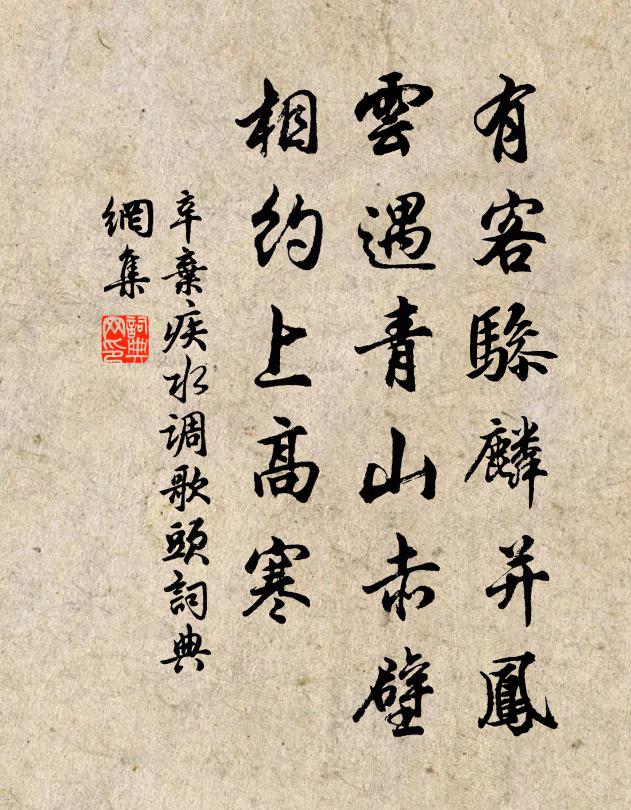 有客驂麟并鳳
雲遇青山赤壁
相約上高寒
辛棄疾水调歌頭詞典
網集
詞典
网印